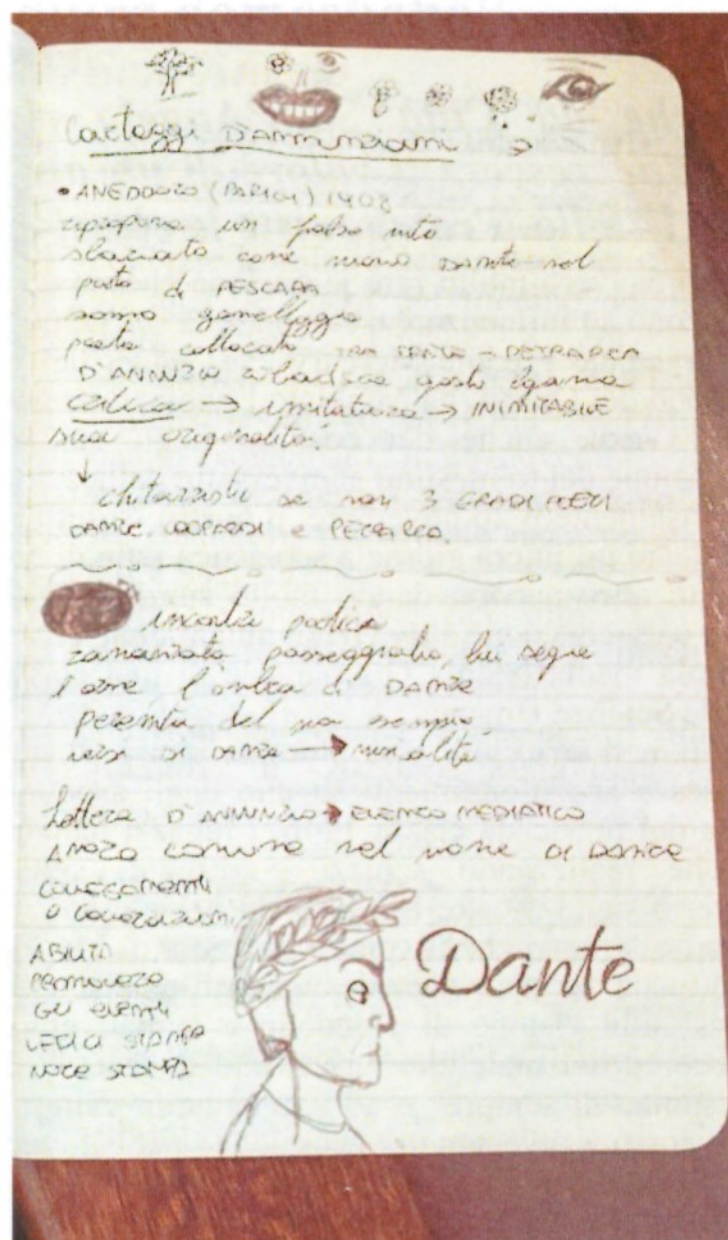 Carteggi D'Annunziani
• ANEDDOTO (PARIGI) 1908
un falso mito
come nuovo DANTE nel
porto di PESCARA
sommo gemellaggio
poeta collocato TRA DANTE e PETRARCA
D'ANNUNZIO ribadisce questo legame
critica → imitatore → INIMITABILE
sua originalità!
↓
se non 3 GRADI POETI
DANTE LEOPARDI e PETRARCA
incontri poetica
passeggiata, lui segue
l'orme l'ombra di DANTE
del suo esempio
versi DI DANTE → musicalità
Lettera D'ANNUNZIO → ELENCO MEDIATICO
comune nel nome DI DANTE
collegamenti
o
ABILITÀ
PROMUOVERE
GLI EVENTI
UFFICI STAMPA
NOTE STAMPA
Dante